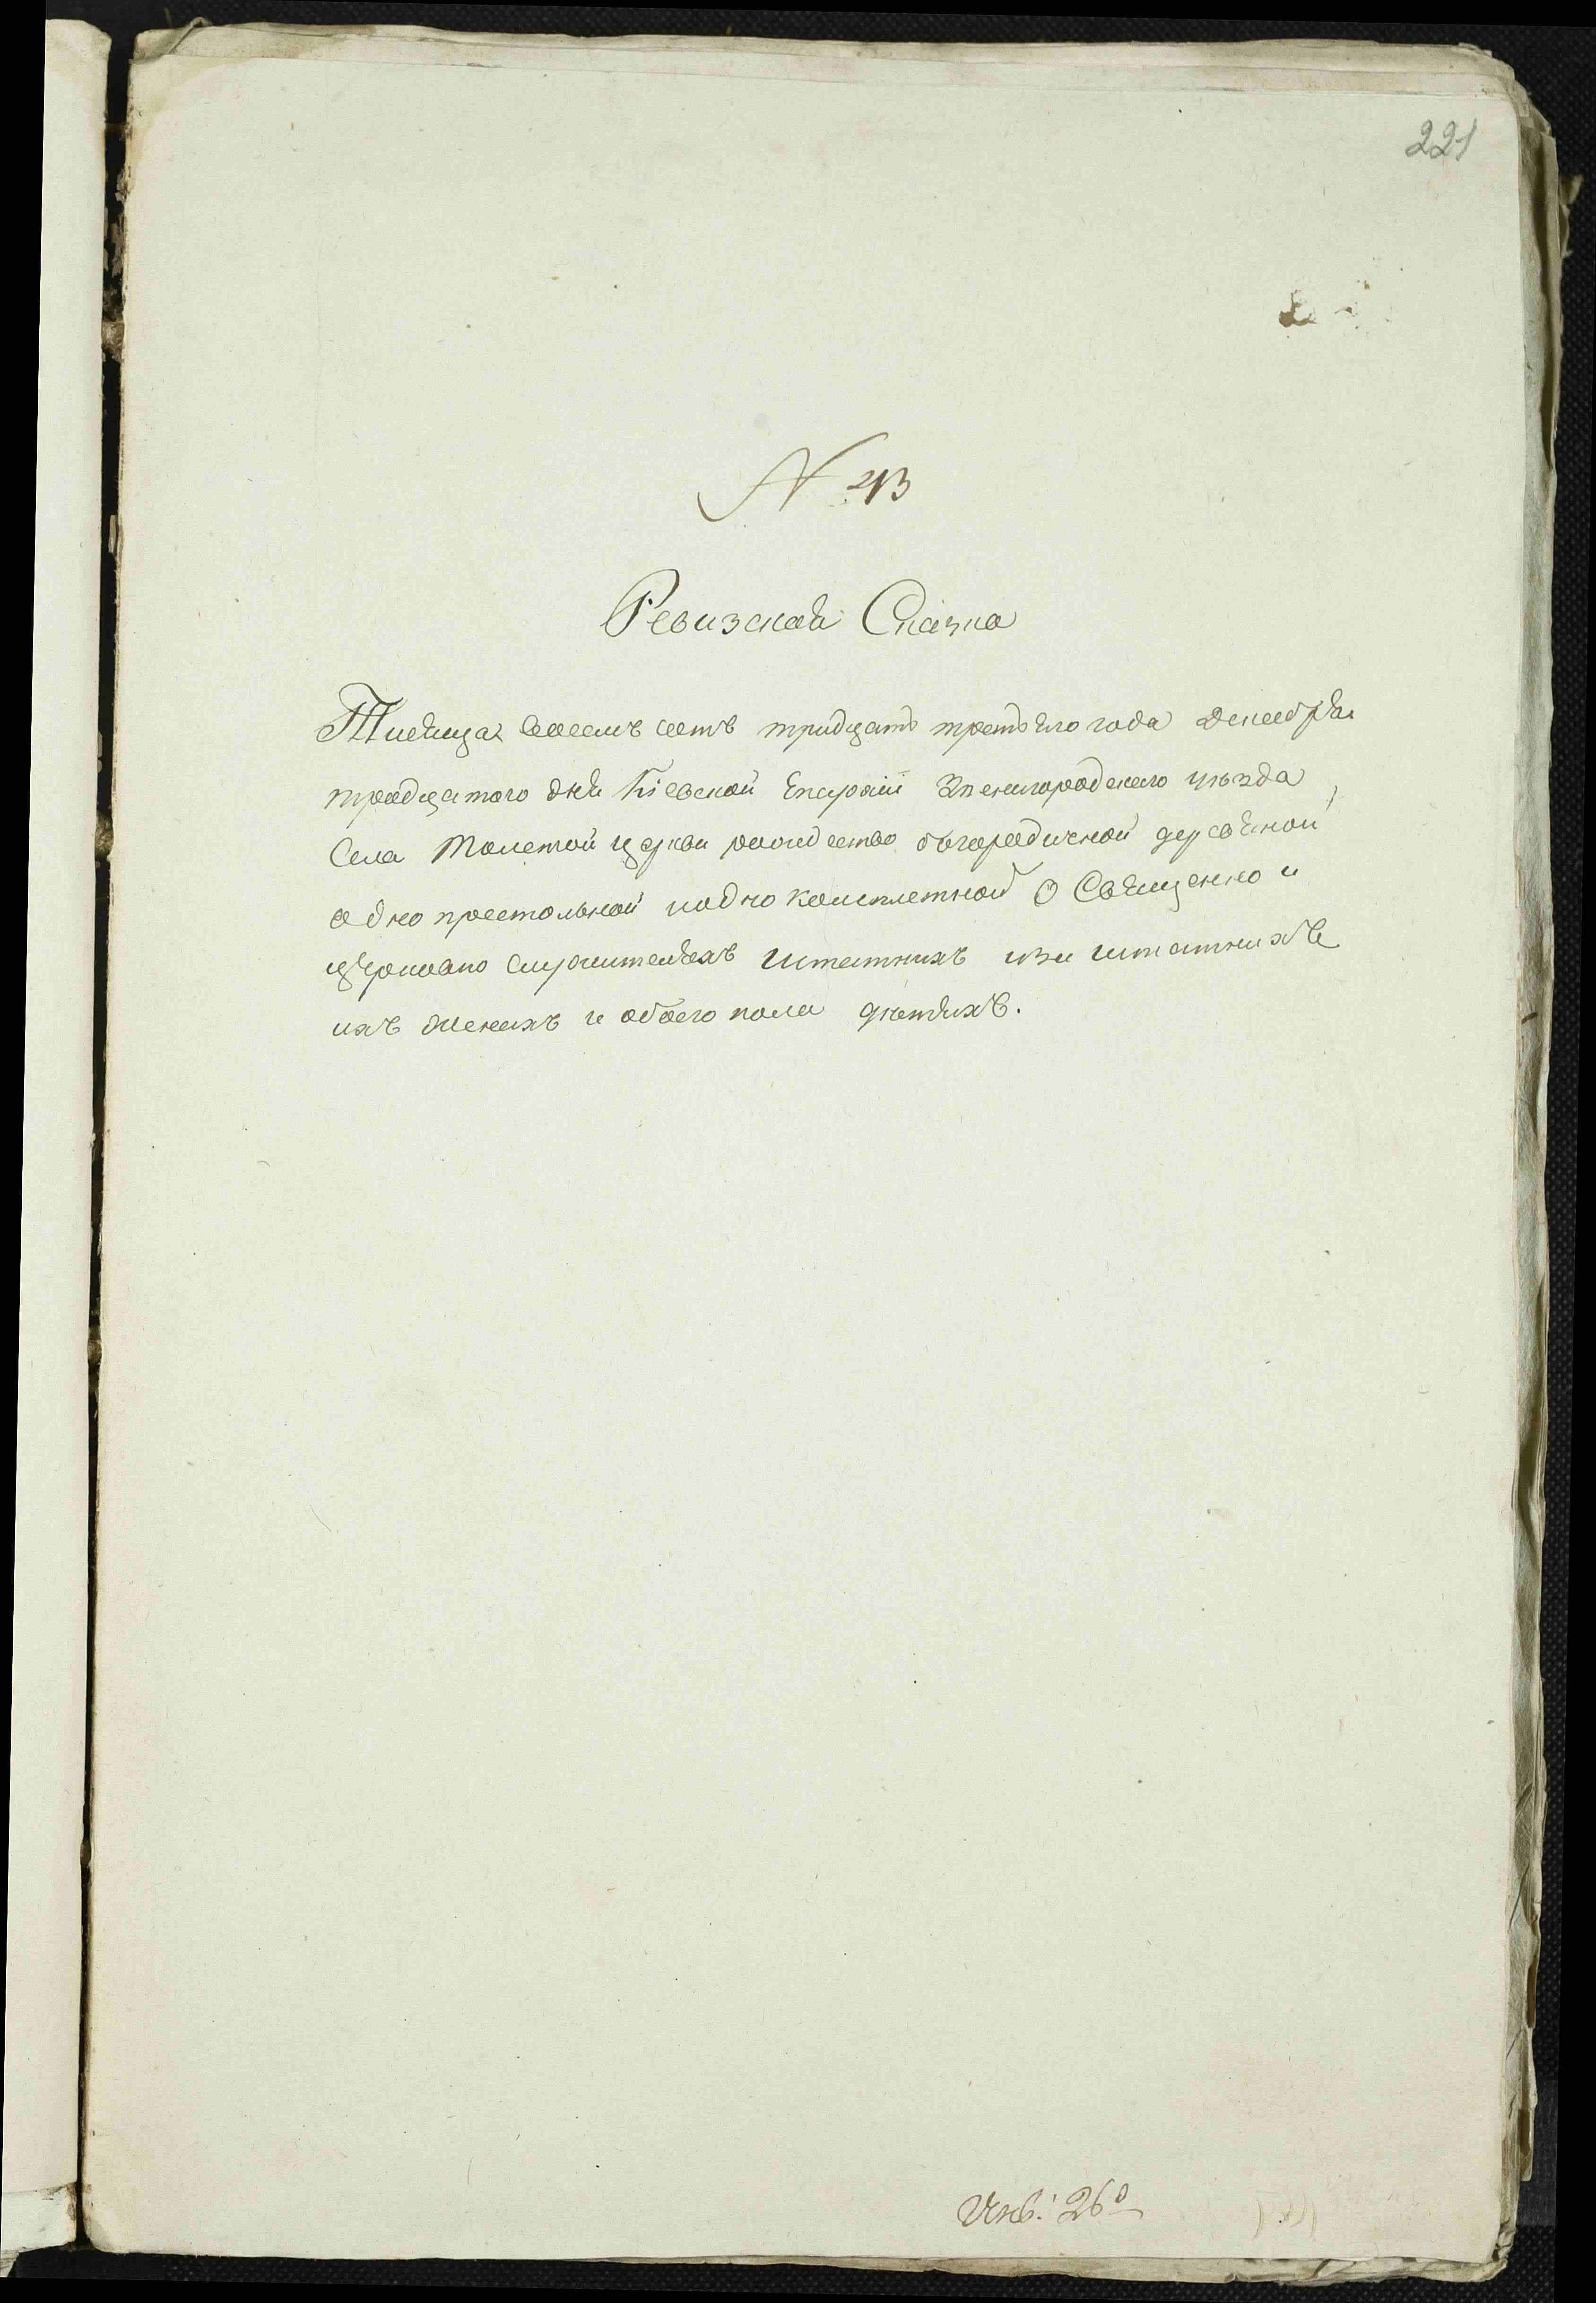 221
N 43
Ревизская Сказка
Тысяща восемъ сотъ тридцать третьяго года Декабря
тридцатого дня Кіевской Епархіи Звенигородского уѣзда
Села Толстой церкви рождество богородичной деревяной
одно престольной и одно комплетной о Священно и
церковно служителяхъ штатнихъ изы штатнихъ
ихъ женахъ и обоего пола дѣтяхъ.
Янв. 26